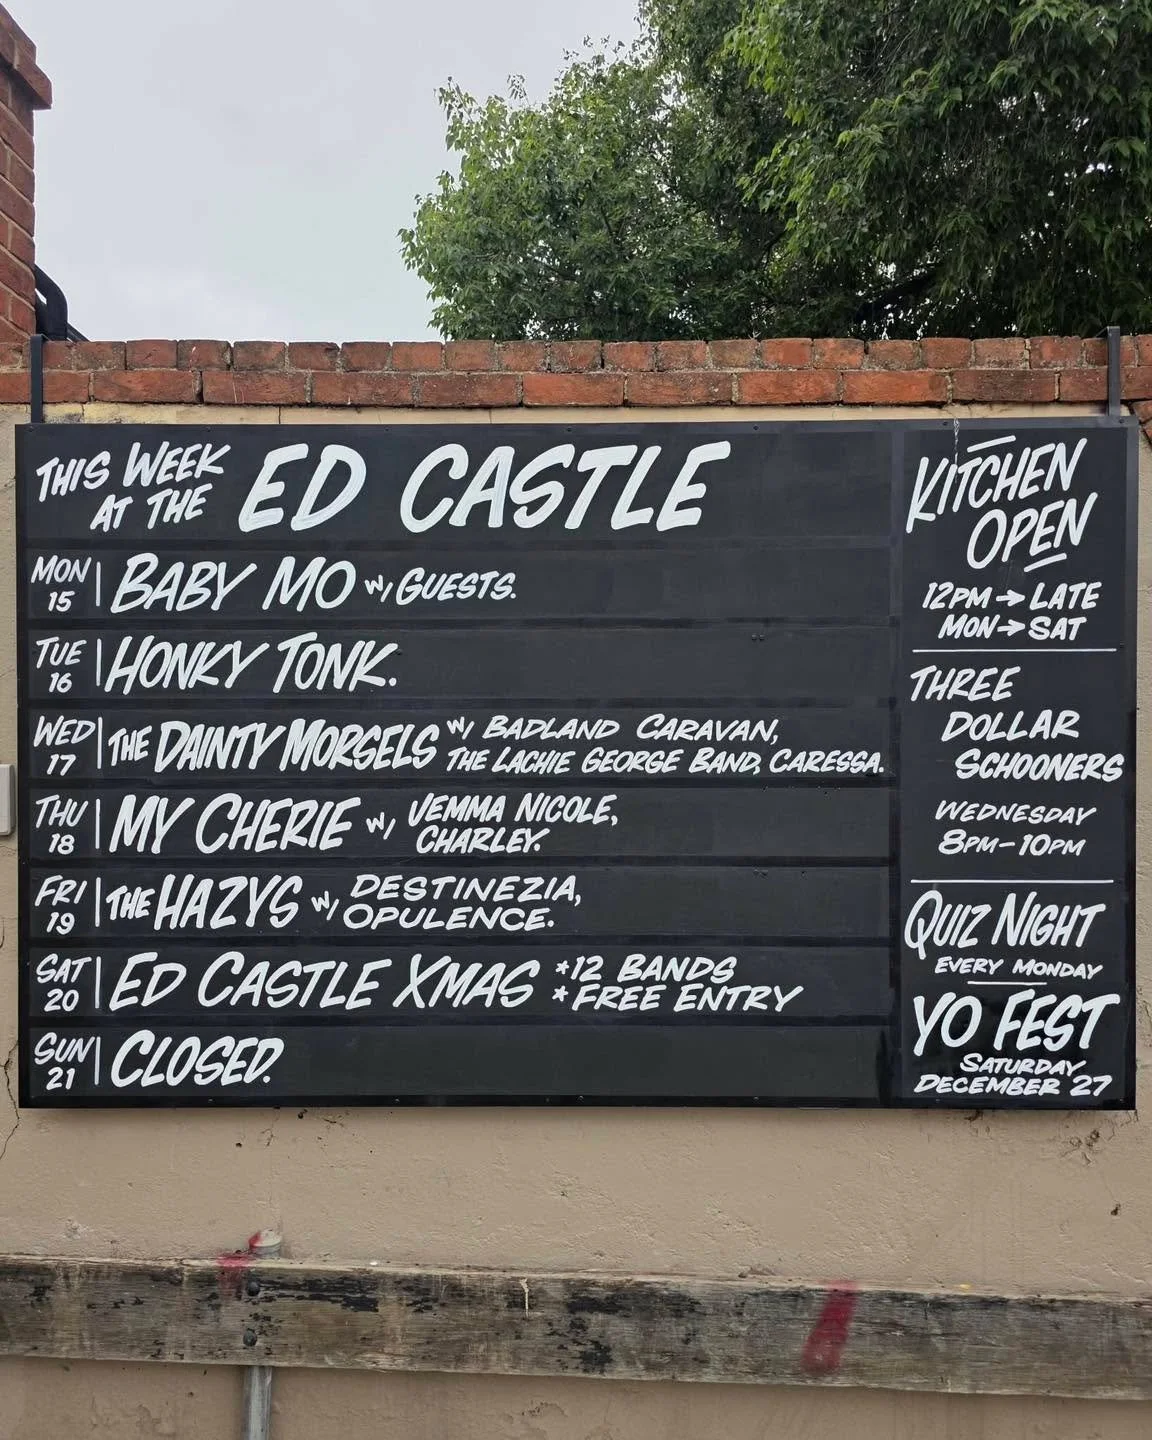 THIS WEEK
AT THE
ED CASTLE
MON
15
BABY MO w/ GUESTS.
TUE
16
HONKY TONK.
WED
17
THE DAINTY MORSELS w/ BADLAND CARAVAN,
THE LACHIE GEORGE BAND, CARESSA.
THU
18
MY CHERIE w/ VEMMA NICOLE,
CHARLEY.
FRI
19
THE HAZYS w/ DESTINEZIA,
OPULENCE.
SAT
20
ED CASTLE XMAS *12 BANDS
*FREE ENTRY
SUN
21
CLOSED.
KITCHEN
OPEN
12PM → LATE
MON → SAT
THREE
DOLLAR
SCHOONERS
WEDNESDAY
8PM-10PM
QUIZ NIGHT
EVERY MONDAY
YO FEST
SATURDAY
DECEMBER 27